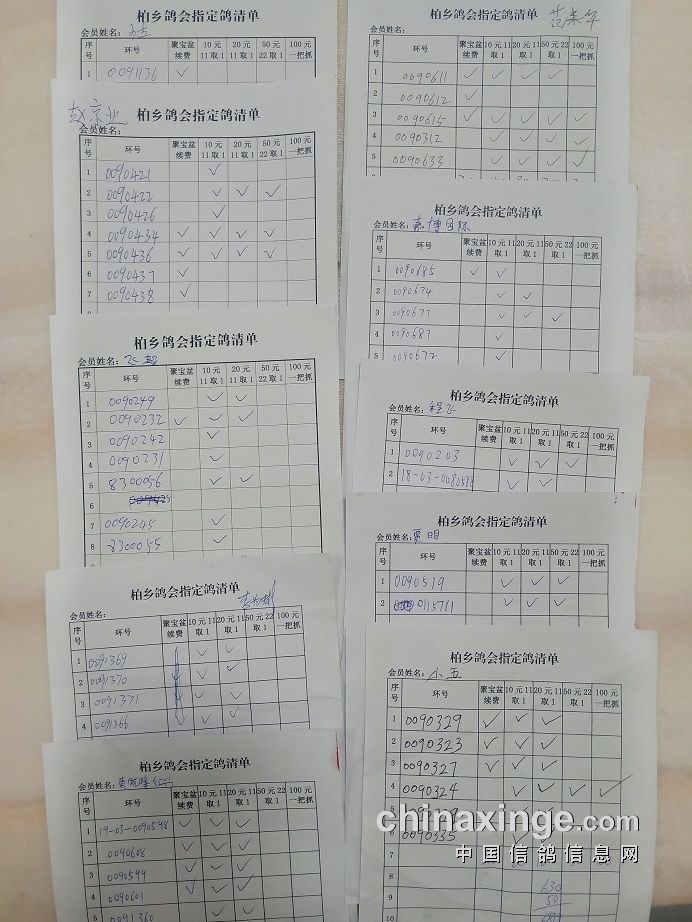 柏乡鸽会指定鸽清单
会员姓名:
序号 环号 聚宝盆续费 10元11取1 20元11取1 50元22取1 100元一把抓
1 0091136 ✓
赵京业
柏乡鸽会指定鸽清单
会员姓名:
序号 环号 聚宝盆续费 10元11取1 20元11取1 50元22取1 100元一把抓
1 0090421 ✓
2 0090422 ✓ ✓ ✓
3 0090426 ✓
4 0090434 ✓ ✓ ✓ ✓
5 0090436 ✓ ✓ ✓ ✓
6 0090437 ✓
7 0090438 ✓
柏乡鸽会指定鸽清单
会员姓名: 飞超
序号 环号 聚宝盆续费 10元11取1 20元11取1 50元22取1 100元一把抓
1 0090249 ✓ ✓
2 0090232 ✓ ✓ ✓
3 0090242 ✓
4 0090231 ✓
5 8300056 ✓ ✓
6
7 0090245 ✓
8 8300055 ✓
柏乡鸽会指定鸽清单
会员姓名:
序号 环号 聚宝盆续费 10元11取1 20元11取1 50元22取1 100元一把抓
1 0091369 ✓ ✓
2 0091370 ✓ ✓
3 0091371 ✓ ✓
4 0091366 ✓ ✓
柏乡鸽会指定鸽清单
会员姓名:
序号 环号 聚宝盆续费 10元11取1 20元11取1 50元22取1 100元一把抓
1 19-03-0090598 ✓ ✓ ✓
2 0090608 ✓ ✓ ✓
3 0090599 ✓ ✓ ✓
4 0090601 ✓ ✓ ✓
5 0091360 ✓ ✓ ✓
柏乡鸽会指定鸽清单
会员姓名:
序号 环号 聚宝盆续费 10元11取1 20元11取1 50元22取1 100元一把抓
1 0090611 ✓ ✓ ✓ ✓
2 0090612 ✓
3 0090615 ✓ ✓ ✓ ✓ ✓
4 0090312 ✓ ✓ ✓ ✓
5 0090633 ✓ ✓ ✓ ✓
柏乡鸽会指定鸽清单
会员姓名: 嘉博国际
序号 环号 聚宝盆续费 10元11取1 20元11取1 50元22取1 100元一把抓
1 0090685 ✓ ✓
2 0090674 ✓ ✓
3 0090677 ✓ ✓ ✓
4 0090687 ✓
5 0090672 ✓
柏乡鸽会指定鸽清单
会员姓名: 程飞
序号 环号 聚宝盆续费 10元11取1 20元11取1 50元22取1 100元一把抓
1 0090203 ✓ ✓ ✓
2 ✓ ✓
柏乡鸽会指定鸽清单
会员姓名: 贾明
序号 环号 聚宝盆续费 10元11取1 20元11取1 50元22取1 100元一把抓
1 0090519 ✓ ✓ ✓
2 ✓ ✓ ✓
柏乡鸽会指定鸽清单
会员姓名: 小五
序号 环号 聚宝盆续费 10元11取1 20元11取1 50元22取1 100元一把抓
1 0090329 ✓ ✓ ✓
2 0090323 ✓ ✓ ✓
3 0090327 ✓ ✓ ✓
4 0090324 ✓ ✓ ✓ ✓ ✓
6 0090335
7
8
9
10
630
50
chinaxinge.com
中国信鸽信息网